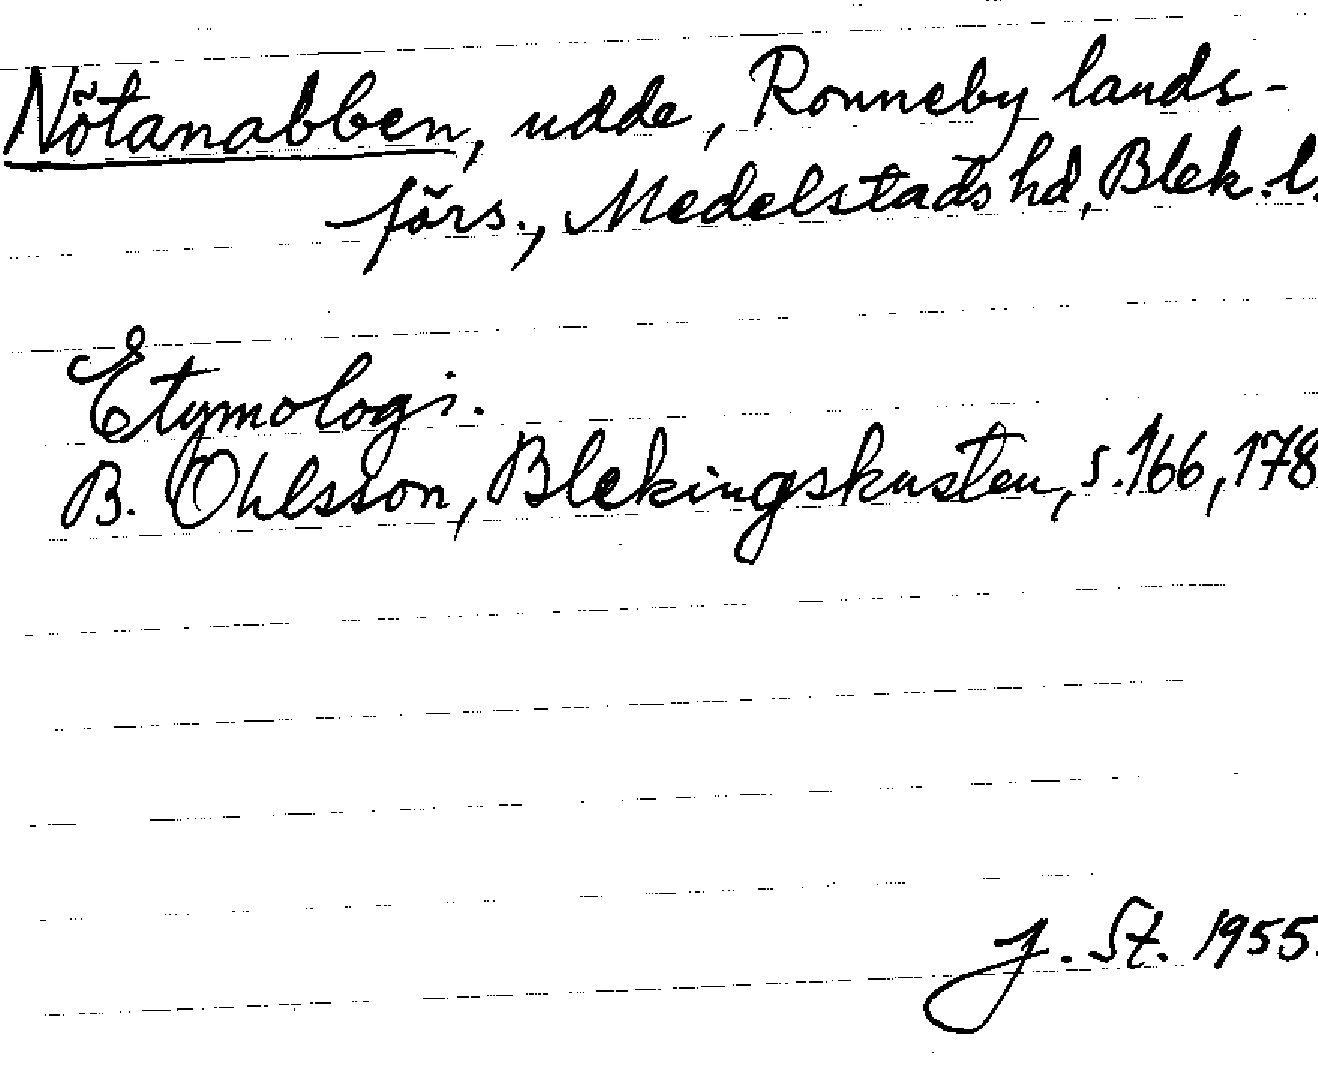 Nötanabben, udde, Ronneby lands-
förs., Medelstads hd, Blek. l.
Etymologi.
B. Ohlsson, Blekingskusten, s. 166, 178
J. St. 1955.